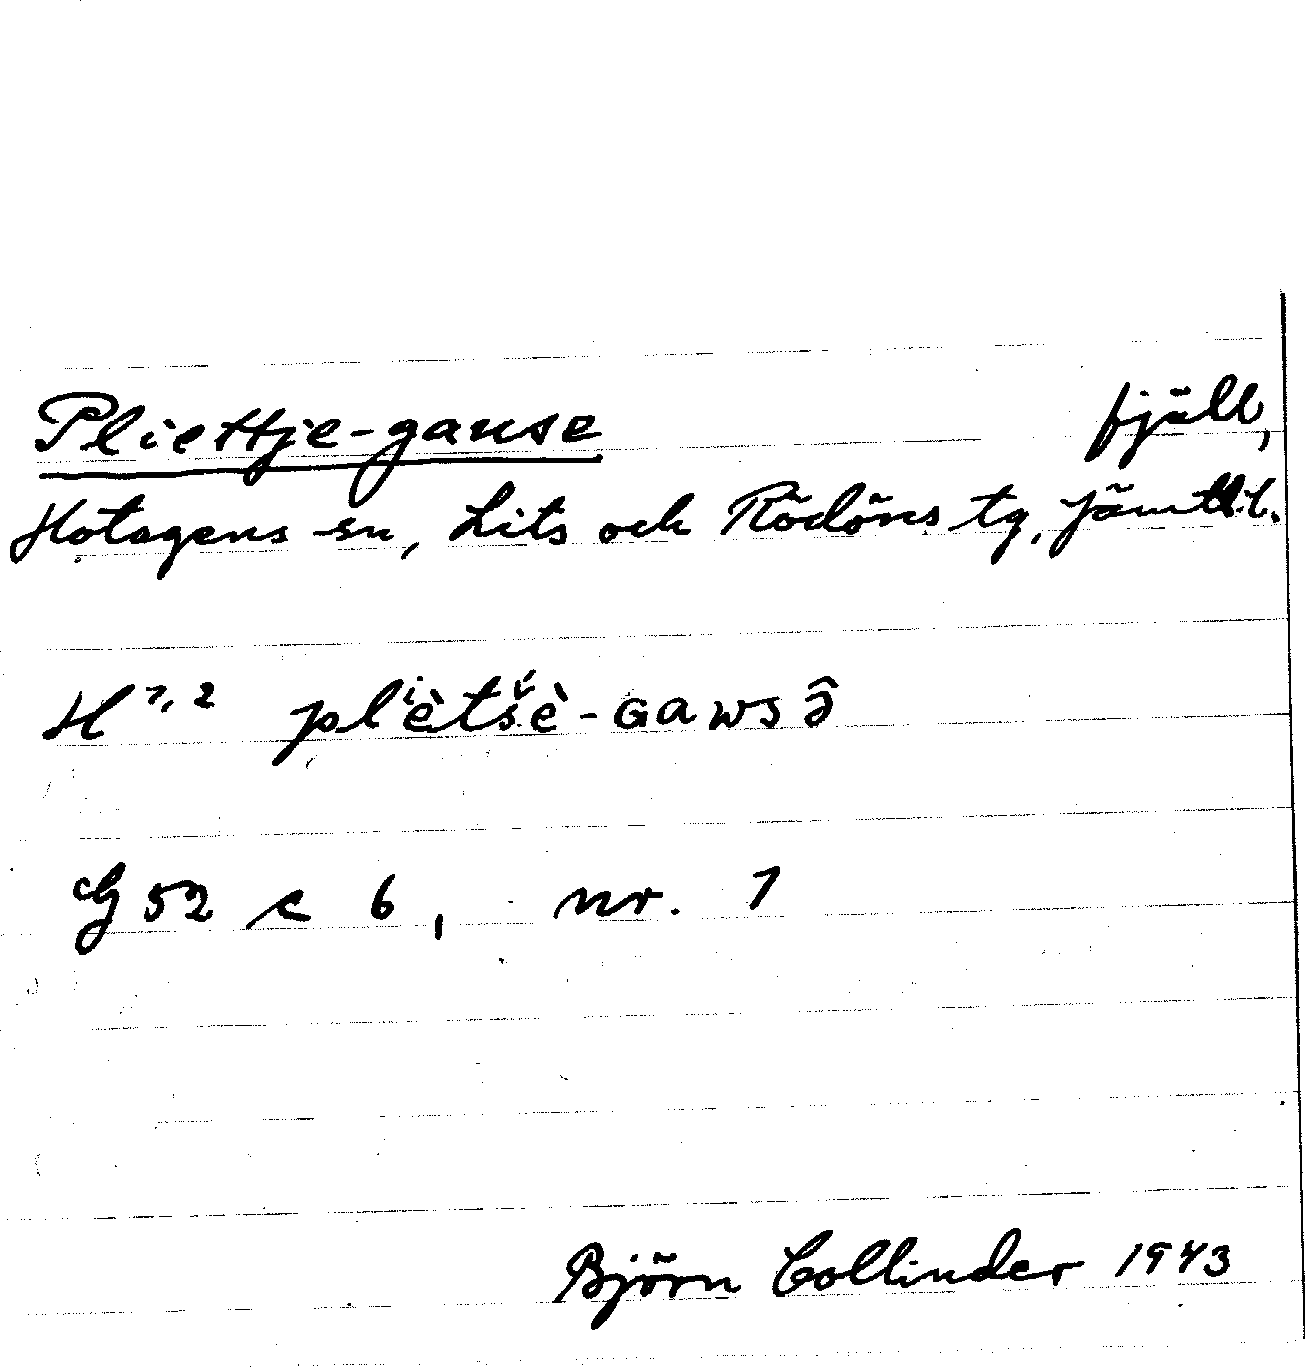 Pliettje-gause fjäll,
Hotagens sn, Lits och Rödöns tg, Jämtl. l.
H 1, 2 plⁱètšè-GawsƏ̂
G 52 c 6, nr. 1
Björn Collinder 1943